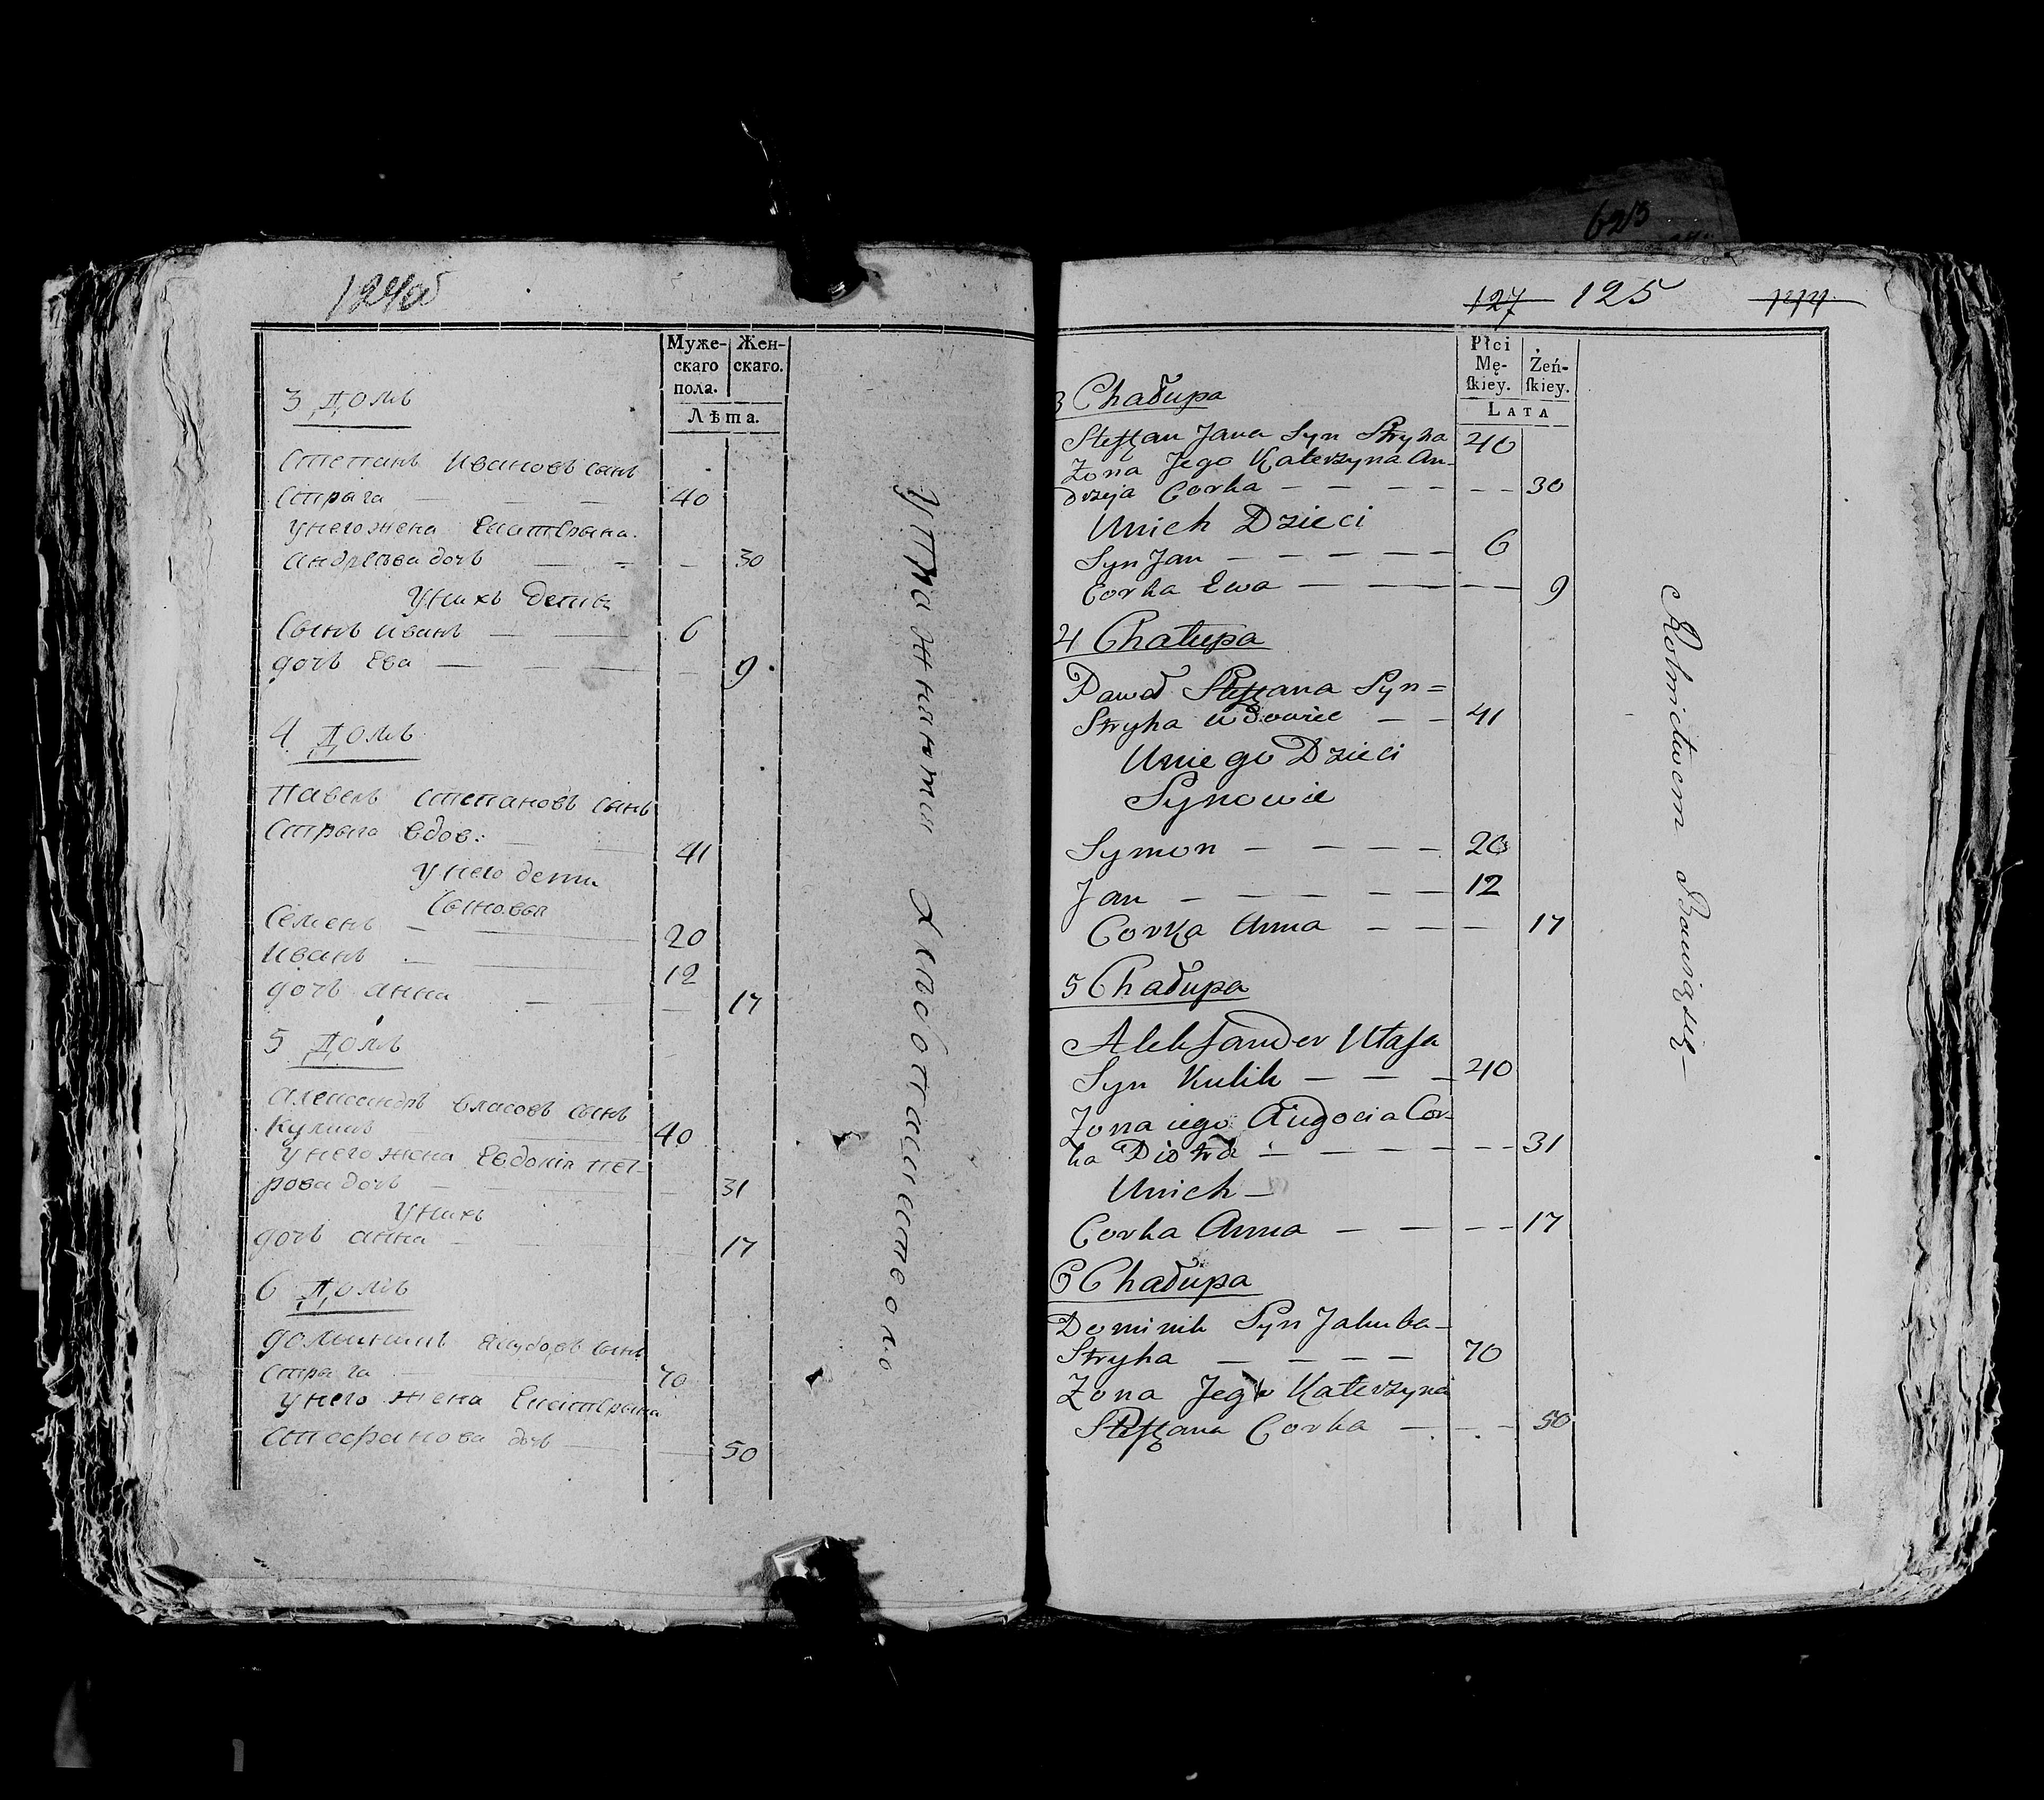 6213
124об
Муже-
скаго
пола.
Жен-
скаго.
Лѣта.
3 Домъ
Степанъ Ивановъ сынъ
Стрыга — — — 40
У него жена Екатерина
Андреева дочь — — — 30
У нихъ дети
Сынъ Иванъ — — 6
дочь Ева — — — — 9
4 Домъ
Павелъ Степановъ сынъ
Стрыга вдов: — — 41
У него дети
Сыновья
Семенъ — — 20
Иванъ — — 12
дочь Анна — — — 17
5 Домъ
Александръ Власовъ сынъ
Куликъ — 40
У него жена Евдокія Пет-
рова дочь — — — 31
У нихъ
дочь Анна — — — 17
6 Домъ
Доминикъ Якубовъ сынъ
Стрыга — 70
У него жена Екатерина
Стефанова дочь — — 50
Упражняются Хлебопашеством
127 125 144
Płci
Mę-
skiey.
Żeń-
skiey.
LATA
3 Chałupa
Stefan Jana Syn Stryha 40
Żona Jego Katerzyna An-
drzeja Corka — — — — — — 30
Unich Dzieci
Syn Jan — — — — — 6
Corka Ewa — — — — — 9
4 Chałupa
Paweł Stefana Syn =
Stryha wdowiec — — 41
Uniego Dzieci
Synowie
Symon — — — — 20
Jan — — — — — 12
Corka Anna — — — 17
5 Chałupa
Aleksander Ułasa
Syn Kulik — — — 40
Zona iego Audocia Cor-
ka Piotra — — — — — — 31
Unich —
Corka Anna — — — — 17
6 Chałupa
Dominik Syn Jakuba —
Stryha — — — — 70
Zona Jego Katerzyna
Stefana Corka — — — 50
Rolnictwem Bawią się —